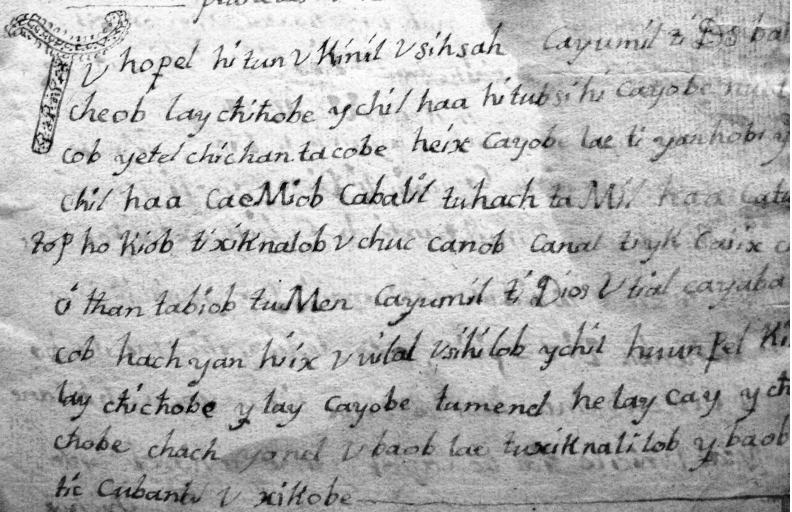 Tu hopel hi tun v Kinil v sihsah Cayumil ti Ds
cheob lay chichobe ychil haa hi tubsihi Cayobe
cob yetel chichan tacobe heix Cayobe lae ti yanhobi y
chil haa CaeMiob Cabalil tuhach taMil haa
topp ho Kiob ti xiKnalob v chuc canob Canal ti yk Caiix
o than tabiob tuMen Cayumil ti Dios V tial cayaba
cob hach yan hiix v uilal vsihilob ychil huunpel Ki
lay chichobe y lay cayobe tumenel he lay cay y
chobe chach yanel v baob lae tu xiKnalilob y baob
tic Cubantu v xiKobe